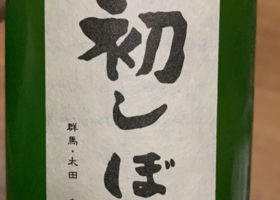 初しぼ
群馬・太田